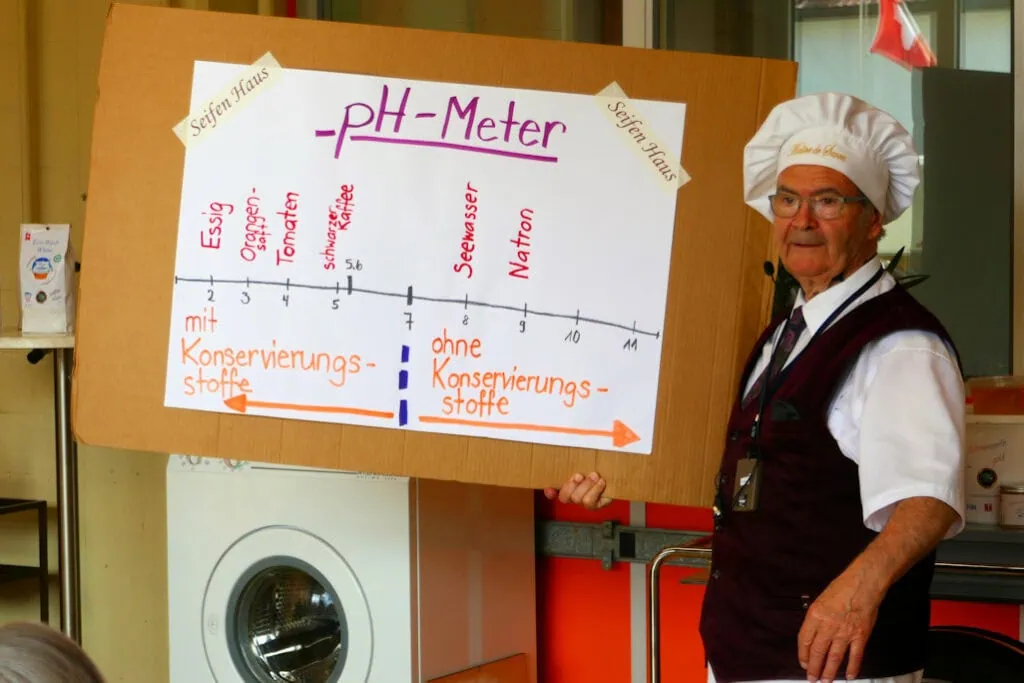 Seifen Haus
Seifen Haus
-pH-Meter
Essig
Orangen-
saft
Tomaten
schwarzer
Kaffee
Seewasser
Natron
5.6
2 3 4 5 7 8 9 10 11
mit
Konservierungs-
stoffe
ohne
Konservierungs-
stoffe